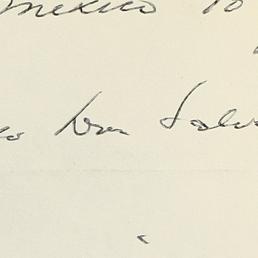 Mexico 10
Don Salv